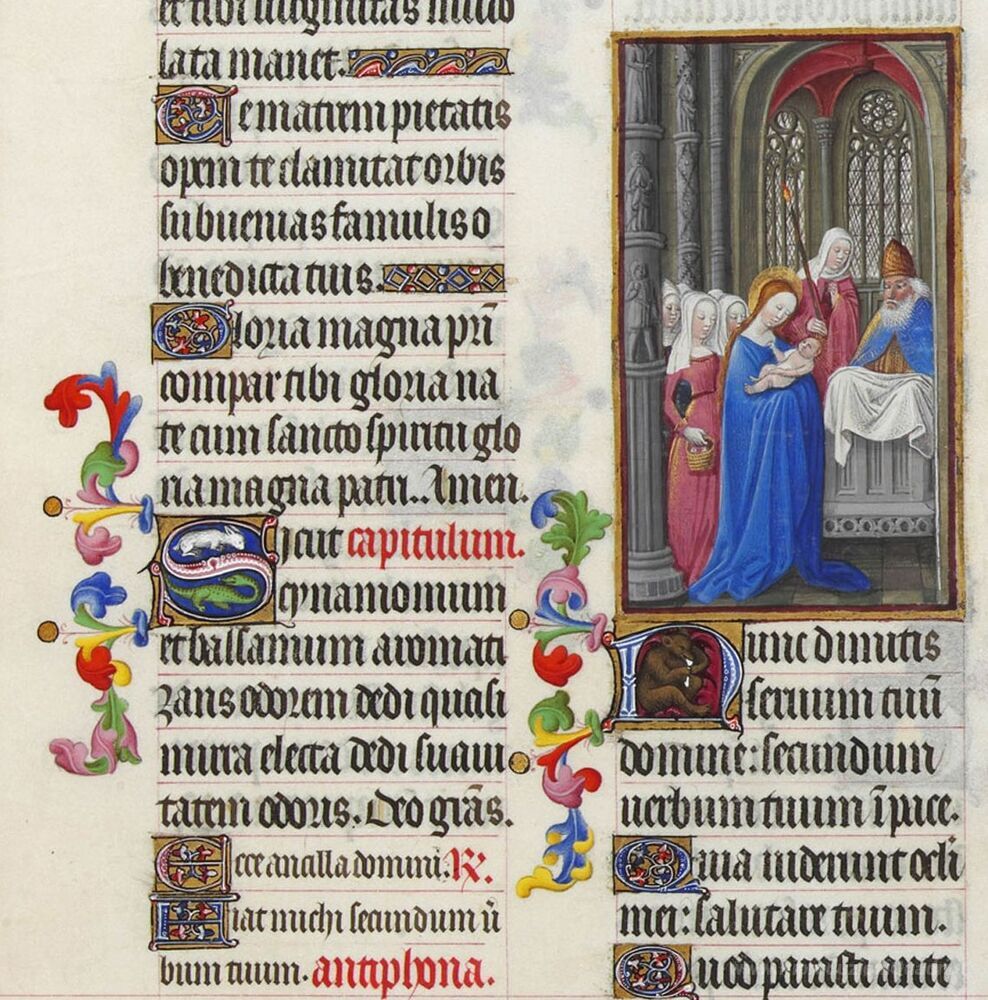 et tibi virginitas inuio
lata manet.
Te matrem pietatis
opem te clamitat orbis
subuenias famulis o
benedicta tuis.
Gloria magna pr̄i
compar tibi gloria na
te cum sancto spiritu glo
ria magna patri. Amen.
Sicut capitulum.
cynamomum
et balsamum aromati
zans odorem dedi quasi
mirra electa dedi suaui
tatem odoris. Deo gr̄as.
Ecce ancilla domini. R̷.
Fiat michi secundum ū
bum tuum. antiphona.
Nunc dimittis
seruum tuū
domine: secundum
uerbum tuum ī pace.
Quia uiderunt ocli
mei: salutare tuum.
Quod parasti ante